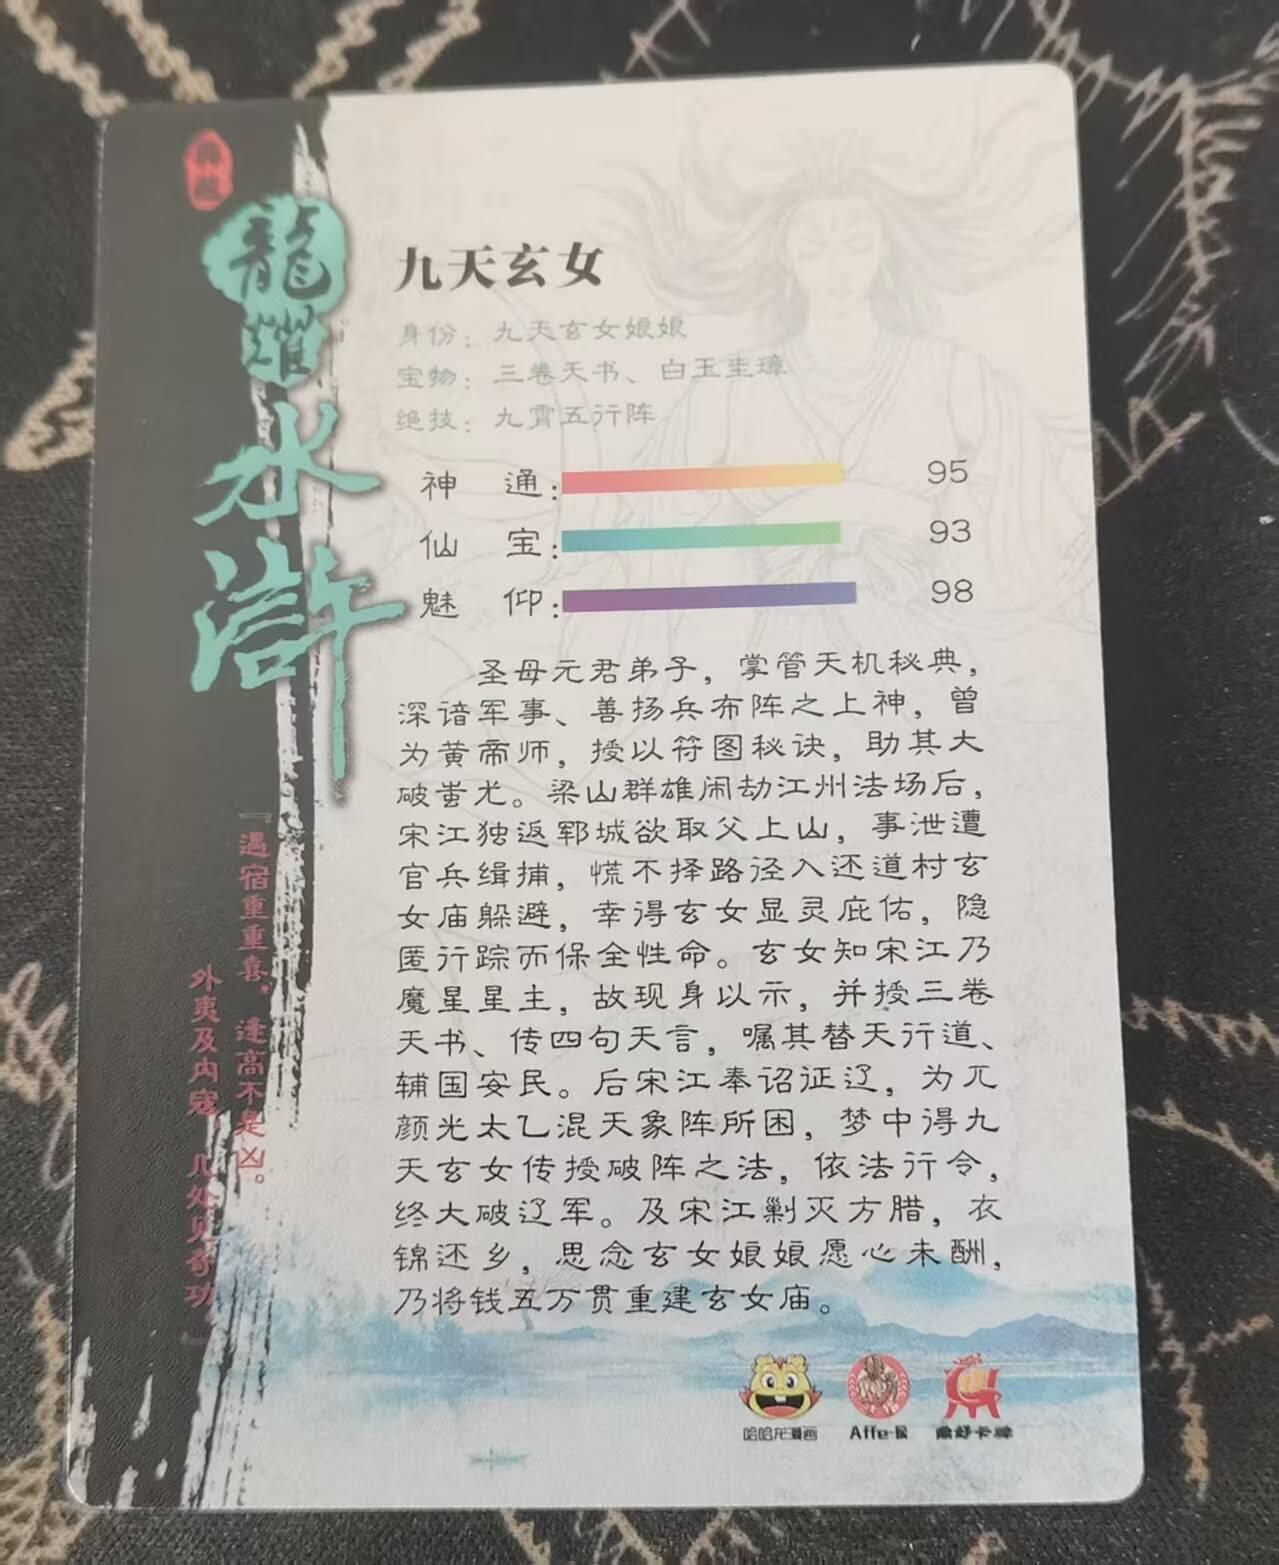 典藏
龍耀水滸
『遇宿重重喜，逢高不是凶。
外夷及内寇，几处见奇功。』
九天玄女
身份：九天玄女娘娘
宝物：三卷天书、白玉圭璋
绝技：九霄五行阵
神通：95
仙宝：93
魅仰：98
圣母元君弟子，掌管天机秘典，
深谙军事、善扬兵布阵之上神，曾
为黄帝师，授以符图秘诀，助其大
破蚩尤。梁山群雄闹劫江州法场后，
宋江独返郓城欲取父上山，事泄遭
官兵缉捕，慌不择路径入还道村玄
女庙躲避，幸得玄女显灵庇佑，隐
匿行踪而保全性命。玄女知宋江乃
魔星星主，故现身以示，并授三卷
天书、传四句天言，嘱其替天行道、
辅国安民。后宋江奉诏征辽，为兀
颜光太乙混天象阵所困，梦中得九
天玄女传授破阵之法，依法行令，
终大破辽军。及宋江剿灭方腊，衣
锦还乡，思念玄女娘娘愿心未酬，
乃将钱五万贯重建玄女庙。
哈哈龙漫画
Affe-侯
鼎好卡牌